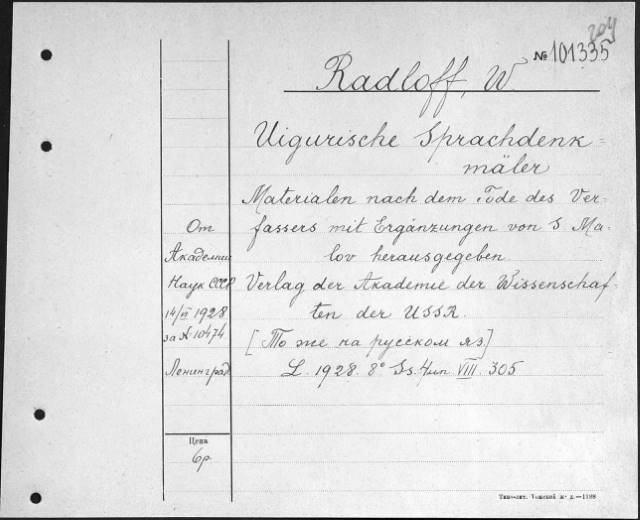 204
№ 101335
Radloff, W
Uigurische Sprachdenk=
mäler
Materialen nach dem Tode des Ver-
fassers mit Ergänzungen von S. Ma-
lov herausgegeben.
Verlag der Akademie der Wissenschaf-
ten der USSR.
[То же на русском яз.]
L. 1928. 8° Ss. 4un. VIII. 305
От
Академии
Наук СССР
14/VI 1928
за № 10474
Ленинград
Цена
6р
Типо-лит. Томской ж. д.—1198